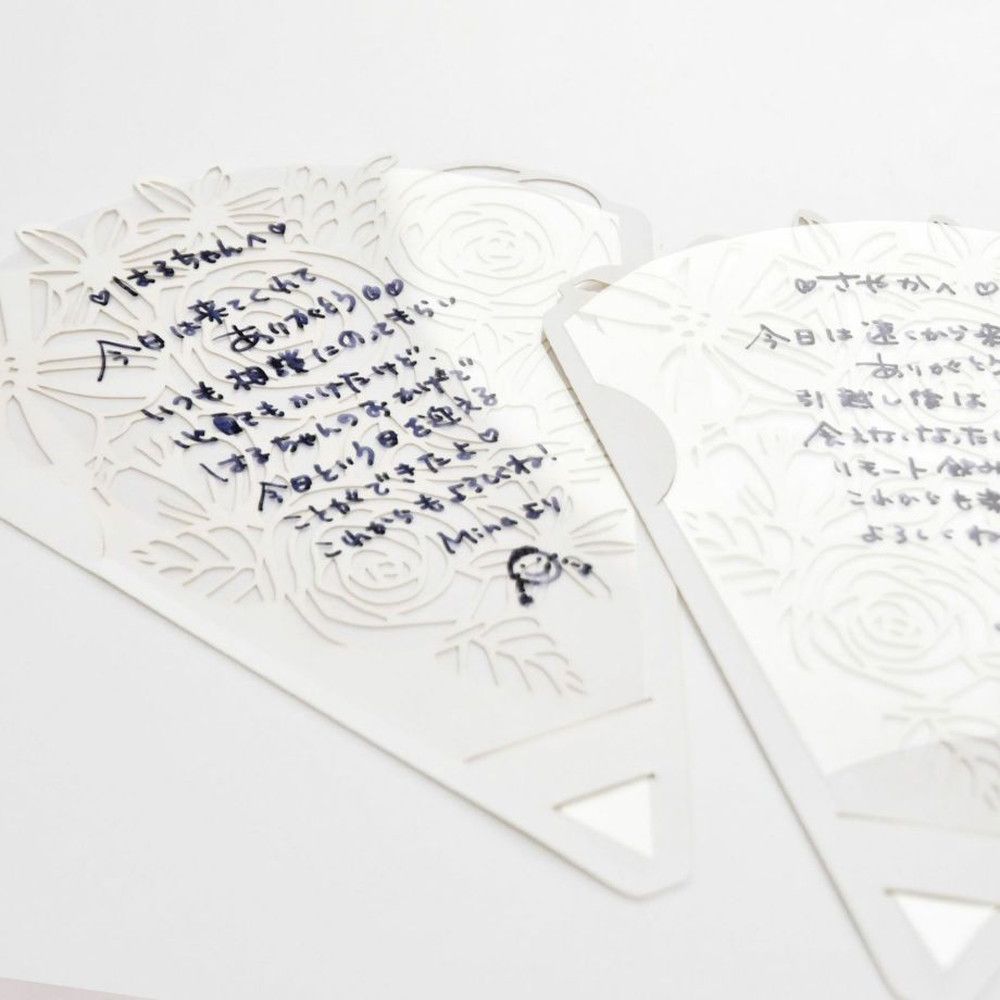 ♡はるちゃんへ♡
今日は来てくれて
ありがとう♡♡
いつも相談にのってもらい
心配もかけたけど、
はるちゃんのおかげで
今日という日を迎える
ことができたよ♡
これからもよろしくね!
Minaより
♡さやかへ♡
今日は遠くから来
ありがとう
引越し後は
会えなくなった
リモート飲み
これからも
よろしくね